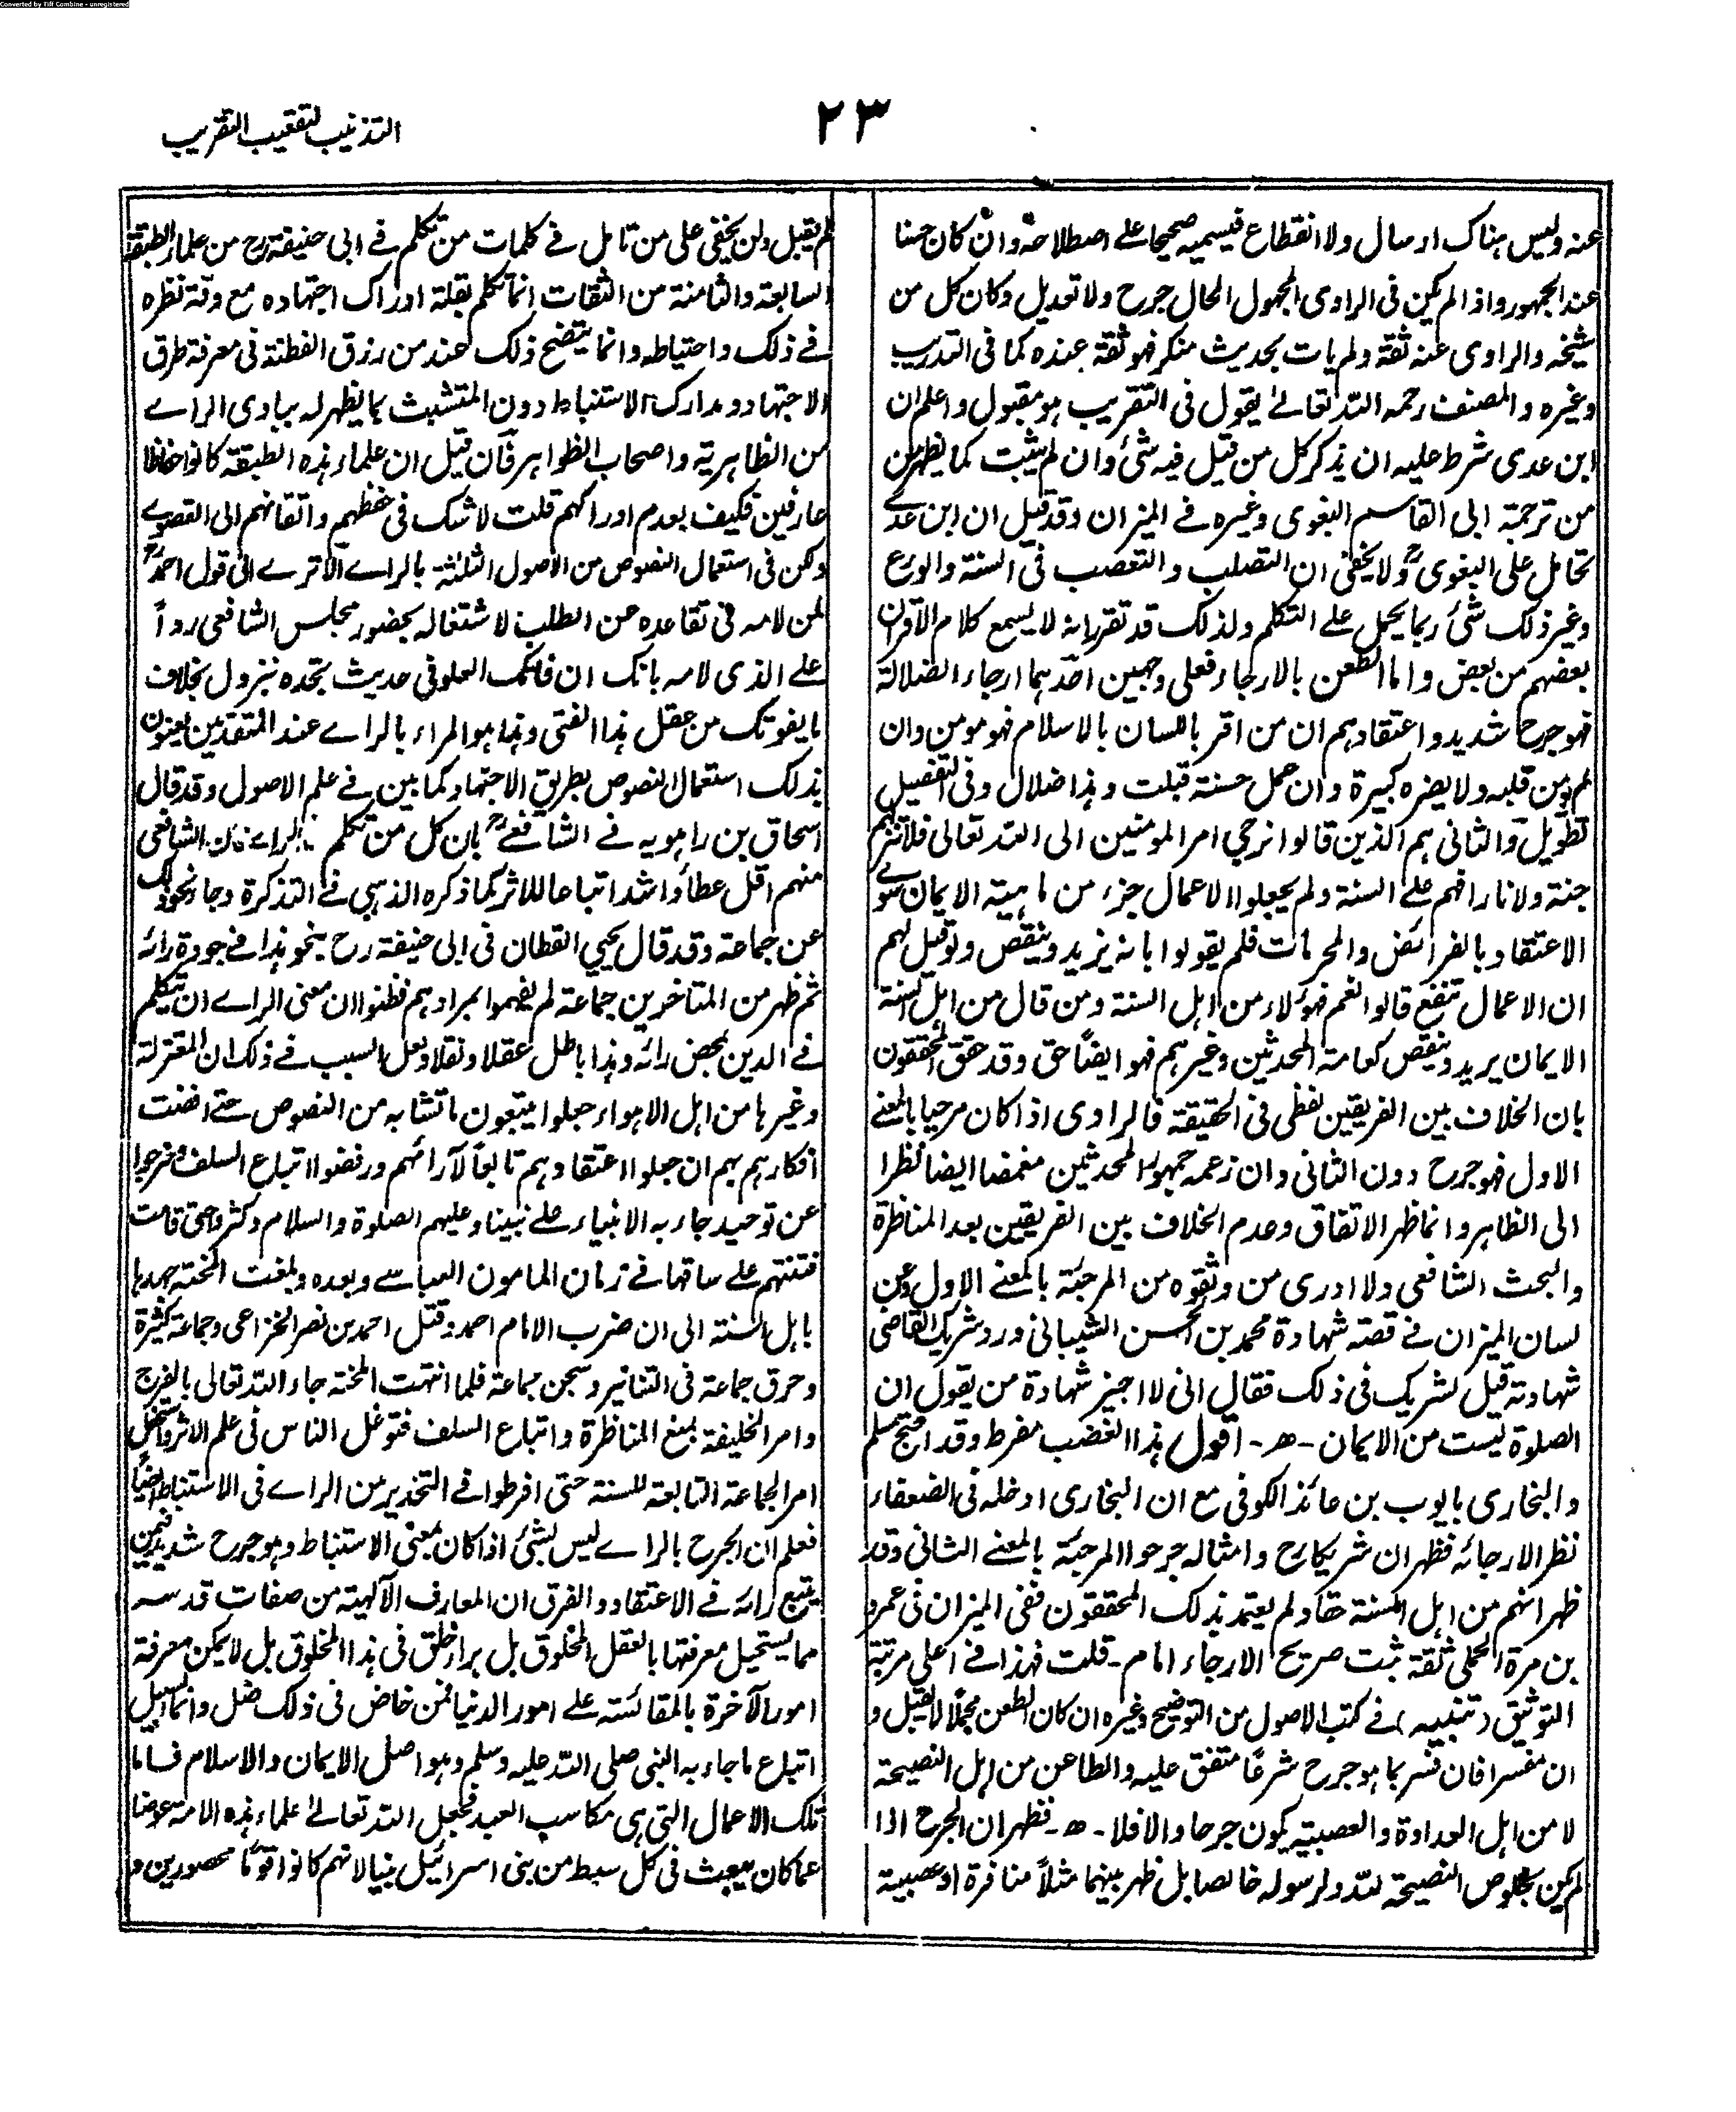 Converted by Tiff Combine - unregistered
التذنیب لتعقیب التقریب
۲۳
عنه ولیس ہناک ارسال ولا انقطاع فیسمیہ صحیحا علے اصطلاحہ وان کان حسنا
عند الجمہور واذا لم یکن فی الراوی المجہول الحال جرح ولا تعدیل وکان کل من
شیخہ والراوی عنہ ثقة ولم یات بحدیث منکر فہو ثقة عندہ کما فی التدریب
وغیرہ والمصنف رحمہ اللہ تعالےٰ یقول فی التقریب ہو مقبول واعلم ان
ابن عدی شرط علیہ ان یذکر کل من قیل فیہ شئ وان لم یثبت کما یظہر
من ترجمة ابی القاسم البغوی وغیرہ فے المیزان وقد قیل ان ابن عدے
تحامل علی البغوی ولا یخفی ان التصلب والتعصب فی السنة والورع
وغیر ذلک شئ ربما یحمل علے التکلم ولذلک قد تقرر انہ لا یسمع کلام الاقران
بعضہم من بعض واما الطعن بالارجاء فعلی وجہین احدہما ارجاء الضلالة
فہو جرح شدید واعتقادہم ان من اقر باللسان بالاسلام فہو مومن وان
لم یومن قلبہ ولا یضرہ کبیرة وان عمل حسنة قبلت وہذا ضلال وفی التفصیل
تطویل والثانی ہم الذین قالوا نرجی امر المومنین الی اللہ تعالی فلا ننزلہم
جنة ولا نارا فہم علے السنة ولم یجعلوا الاعمال جزء من ماہیة الایمان سوے
الاعتقاد بالفرائض والمحرمات فلم یقولوا بانہ یزید وینقص ولو قیل لہم
ان الاعمال تنفع قالوا نعم فہؤلاء من اہل السنة ومن قال من اہل السنة
الایمان یزید وینقص کعامة المحدثین وغیرہم فہو ایضاً حق وقد حقق المحققون
بان الخلاف بین الفریقین لفظی فی الحقیقة فالراوی اذا کان مرجیا بالمعنے
الاول فہو جرح دون الثانی وان زعمہ جمہور المحدثین مغمضا ایضا نظرا
الی الظاہر وانما ظہر الاتفاق وعدم الخلاف بین الفریقین بعد المناظرة
والبحث الشافعی ولا ادری من وثقوہ من المرجئة بالمعنے الاول وعن
لسان المیزان فے قصة شہادة محمد بن الحسن الشیبانی ورد شریک القاضی
شہادتہ قیل لشریک فی ذلک فقال انی لا اجیز شہادة من یقول ان
الصلوة لیست من الایمان - ھ - اقول ہذا الغضب مفرط وقد احتج مسلم
والبخاری بایوب بن عائذ الکوفی مع ان البخاری ادخلہ فی الضعفاء
نظر الارجائہ فظہر ان شریکا رح وامثالہ جرحوا المرجئة بالمعنے الثانی وقد
ظہر انہم من اہل السنة حقا ولم یعتمد بذلک المحققون ففی المیزان فی عمرو
بن مرة الجملی ثقة ثبت صریح الارجاء امام - قلت فہذا فے اعلی مرتبة
التوثیق (تنبیہ) فے کتب الاصول من التوضیح وغیرہ ان کان الطعن مجملاً لا یقبل و
ان مفسرا فان فسر بما ہو جرح شرعًا متفق علیہ والطاعن من اہل النصیحة
لا من اہل العداوة والعصبیة یکون جرحا والا فلا - ھ - فظہر ان الجرح اذا
لم یکن بخلوص النصیحة للہ ولرسولہ خالصا بل ظہر بینہما مثلاً منافرة او عصبیة
لم یقبل ولن یخفی علی من تامل فے کلمات من تکلم فے ابی حنیفة رح من علماء الطبقة
السابعة والثامنة من الثقات انما تکلم بقلة ادراک اجتہادہ مع دقة نظرہ
فے ذلک واحتیاطہ وانما یتضح ذلک عند من رزق الفطنة فی معرفة طرق
الاجتہاد ومدارک الاستنباط دون المتشبث بما یظہر لہ ببادی الراے
من الظاہریة واصحاب الظواہر فان قیل ان علماء ہذہ الطبقة کانوا حفاظا
عارفین فکیف بعدم ادراکہم قلت لا شک فی حفظہم واتقانہم الی القصوے
ولکن فی استعمال النصوص من الاصول الثلثة بالراے الا ترے الی قول احمد
لمن لامہ فی تقاعدہ عن الطلب لاشتغالہ بحضور مجلس الشافعی رداً
علے الذی لامہ بانک ان فاتک العلو فی حدیث تجدہ بنزول بخلاف
ما یفوتک من عقل ہذا الفتی وہذا ہو المراد بالراے عند المتقدمین یعنون
بذلک استعمال النصوص بطریق الاجتہاد کما بین فے علم الاصول وقد قال
اسحاق بن راہویہ فے الشافعی بان کل من تکلم بالراے فان الشافعی
منہم اقل خطأ واشد اتباعا للاثر کما ذکرہ الذہبی فے التذکرة وجاء نحو ذلک
عن جماعة وقد قال یحیی القطان فی ابی حنیفة رح بنحو ہذا فے جودة رائہ
ثم ظہر من المتاخرین جماعة لم یفہموا بمرادہم فظنوا ان معنی الراے ان یتکلم
فے الدین بمحض رائہ وہذا باطل عقلا ونقلا ولعل السبب فے ذلک ان المعتزلة
وغیرہا من اہل الاہواء جعلوا یتبعون ما تشابہ من النصوص حتے افضت
افکارہم بہم ان جعلوا اعتقادہم تابعاً لآرائہم ورفضوا اتباع السلف وخرجوا
عن توحید جاء بہ الانبیاء علے نبینا وعلیہم الصلوة والسلام وکثروا حتی قامت
فتنتہم علے ساقہا فے زمان المامون العباسے وبعدہ وبلغت المحنة جہدہا
باہل السنة الی ان ضرب الامام احمد وقتل احمد بن نصر الخزاعی وجماعة کثیرة
وحرق جماعة فی التنانیر وسجن جماعة فلما انتہت المحنة جاء اللہ تعالی بالفرج
وامر الخلیفة بمنع المناظرة واتباع السلف فتوغل الناس فی علم الاثر واستفحل
امر الجماعة التابعة للسنة حتی افرطوا فے التحذیر من الراے فی الاستنباط ایضاً
فعلم ان الجرح بالراے لیس بشئ اذا کان بمعنی الاستنباط وہو جرح شدید فیمن
یتبع رائہ فے الاعتقاد والفرق ان المعارف الآلہیة من صفات قدسہ
مما یستحیل معرفتہا بالعقل المخلوق بل براز خلق فی ہذا المخلوق بل لا یمکن معرفة
امور الآخرة بالمقائسة علے امور الدنیا فمن خاض فی ذلک ضل وانما السبیل
اتباع ما جاء بہ النبی صلی اللہ علیہ وسلم وہو اصل الایمان والاسلام فاما
تلک الاعمال التی ہی مکاسب العبد فجعل اللہ تعالےٰ علماء ہذہ الامة عوضا
عما کان یبعث فی کل سبط من بنی اسرائیل نبیا لانہم کانوا قوما محصورین و